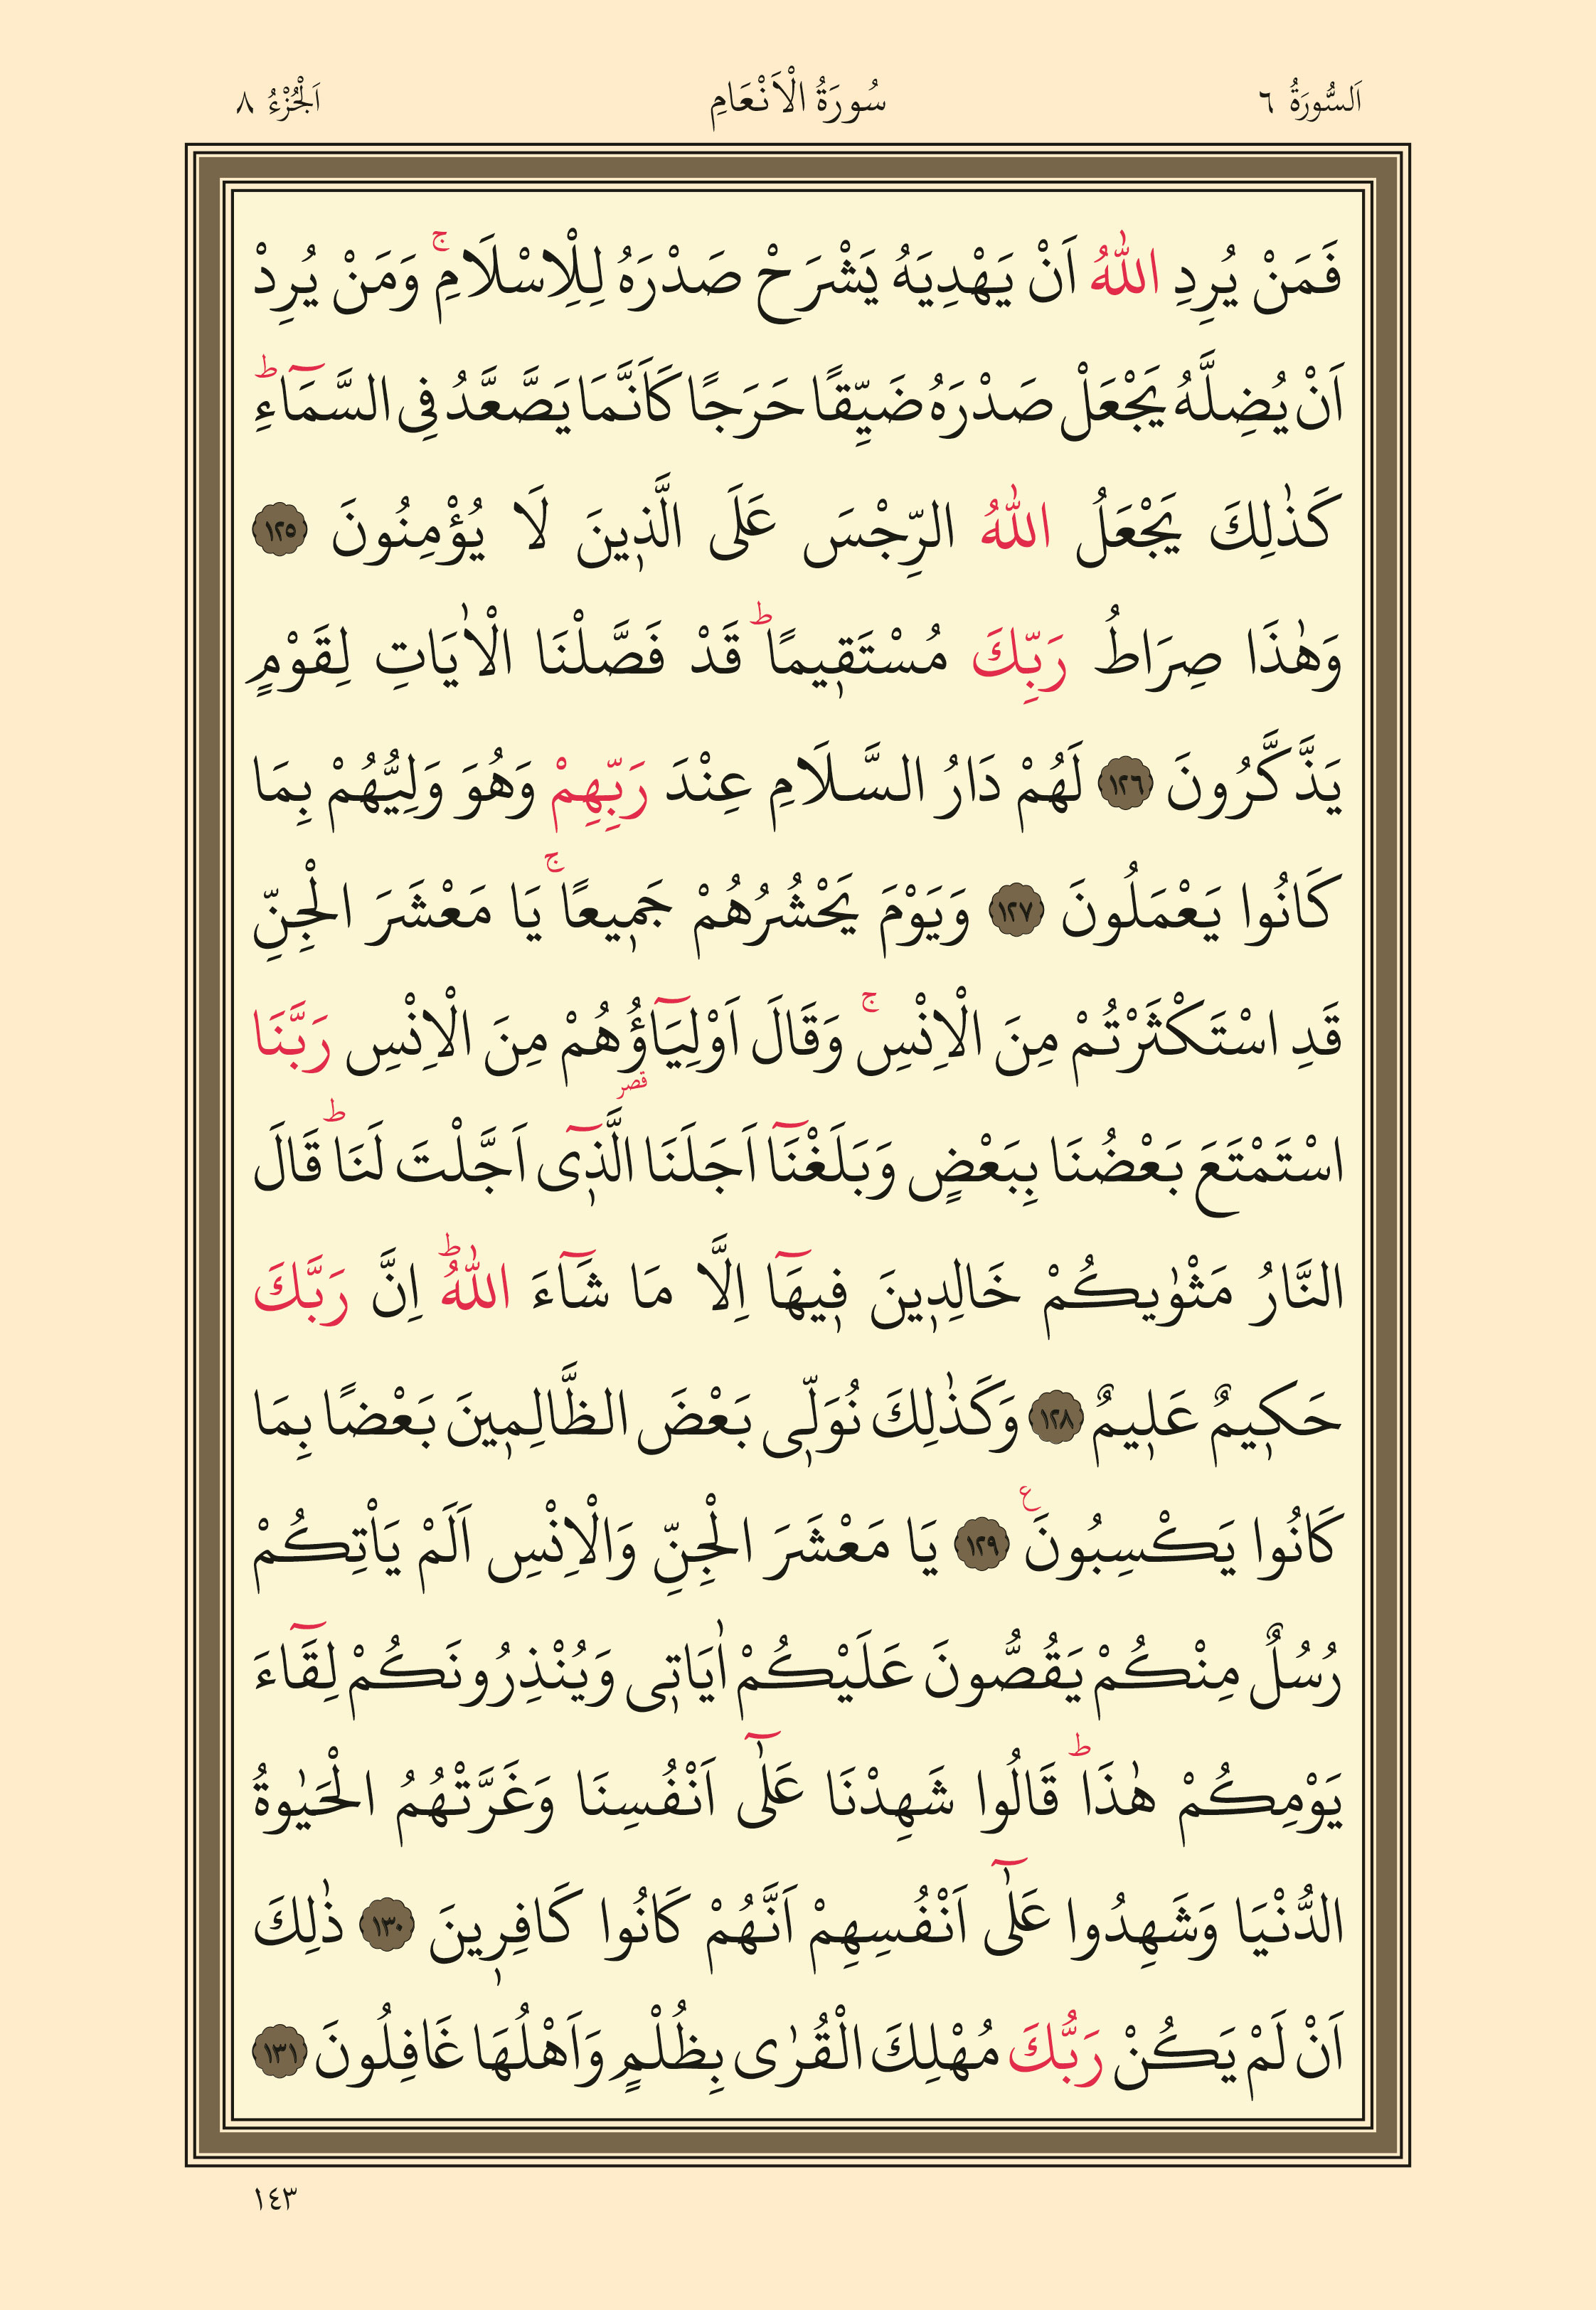 اَلسُّورَةُ ٦ سُورَةُ الْاَنْعَامِ اَلْجُزْءُ ٨
فَمَنْ يُرِدِ اللّٰهُ اَنْ يَهْدِيَهُ يَشْرَحْ صَدْرَهُ لِلْاِسْلَامِۚ وَمَنْ يُرِدْ
اَنْ يُضِلَّهُ يَجْعَلْ صَدْرَهُ ضَيِّقًا حَرَجًا كَاَنَّمَا يَصَّعَّدُ فِى السَّمَٓاءِۜ
كَذٰلِكَ يَجْعَلُ اللّٰهُ الرِّجْسَ عَلَى الَّذ۪ينَ لَا يُؤْمِنُونَ ١٢٥
وَهٰذَا صِرَاطُ رَبِّكَ مُسْتَق۪يمًاۜ قَدْ فَصَّلْنَا الْاٰيَاتِ لِقَوْمٍ
يَذَّكَّرُونَ ١٢٦ لَهُمْ دَارُ السَّلَامِ عِنْدَ رَبِّهِمْ وَهُوَ وَلِيُّهُمْ بِمَا
كَانُوا يَعْمَلُونَ ١٢٧ وَيَوْمَ يَحْشُرُهُمْ جَم۪يعًاۚ يَا مَعْشَرَ الْجِنِّ
قَدِ اسْتَكْثَرْتُمْ مِنَ الْاِنْسِۚ وَقَالَ اَوْلِيَٓاؤُهُمْ مِنَ الْاِنْسِ رَبَّنَا
اسْتَمْتَعَ بَعْضُنَا بِبَعْضٍ وَبَلَغْنَٓا اَجَلَنَا الَّذ۪ٓى قصر اَجَّلْتَ لَنَاۜ قَالَ
النَّارُ مَثْوٰيكُمْ خَالِد۪ينَ ف۪يهَٓا اِلَّا مَا شَٓاءَ اللّٰهُۜ اِنَّ رَبَّكَ
حَك۪يمٌ عَل۪يمٌ ١٢٨ وَكَذٰلِكَ نُوَلّ۪ى بَعْضَ الظَّالِم۪ينَ بَعْضًا بِمَا
كَانُوا يَكْسِبُونَ ع ١٢٩ يَا مَعْشَرَ الْجِنِّ وَالْاِنْسِ اَلَمْ يَاْتِكُمْ
رُسُلٌ مِنْكُمْ يَقُصُّونَ عَلَيْكُمْ اٰيَات۪ى وَيُنْذِرُونَكُمْ لِقَٓاءَ
يَوْمِكُمْ هٰذَاۜ قَالُوا شَهِدْنَا عَلٰٓى اَنْفُسِنَا وَغَرَّتْهُمُ الْحَيٰوةُ
الدُّنْيَا وَشَهِدُوا عَلٰٓى اَنْفُسِهِمْ اَنَّهُمْ كَانُوا كَافِر۪ينَ ١٣٠ ذٰلِكَ
اَنْ لَمْ يَكُنْ رَبُّكَ مُهْلِكَ الْقُرٰى بِظُلْمٍ وَاَهْلُهَا غَافِلُونَ ١٣١
١٤٣